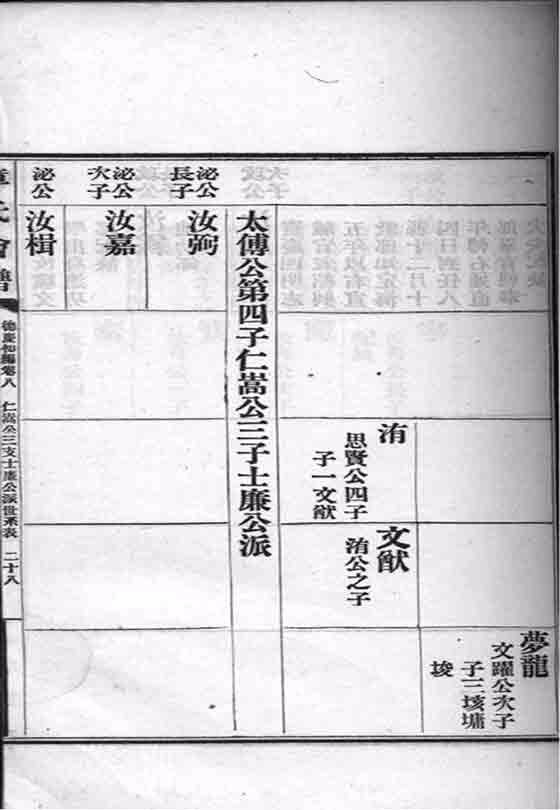 夢龍
文躍公次子
子三垓墉
埈
洧
思賢公四子
子一文猷
文猷
洧公之子
太傅公第四子仁嵩公三子士廉公派
泌公
長子
汝弼
泌公
次子
汝嘉
泌公
汝楫
章氏會譜
德慶初編卷八
仁嵩公三支士廉公派世系表
二十八